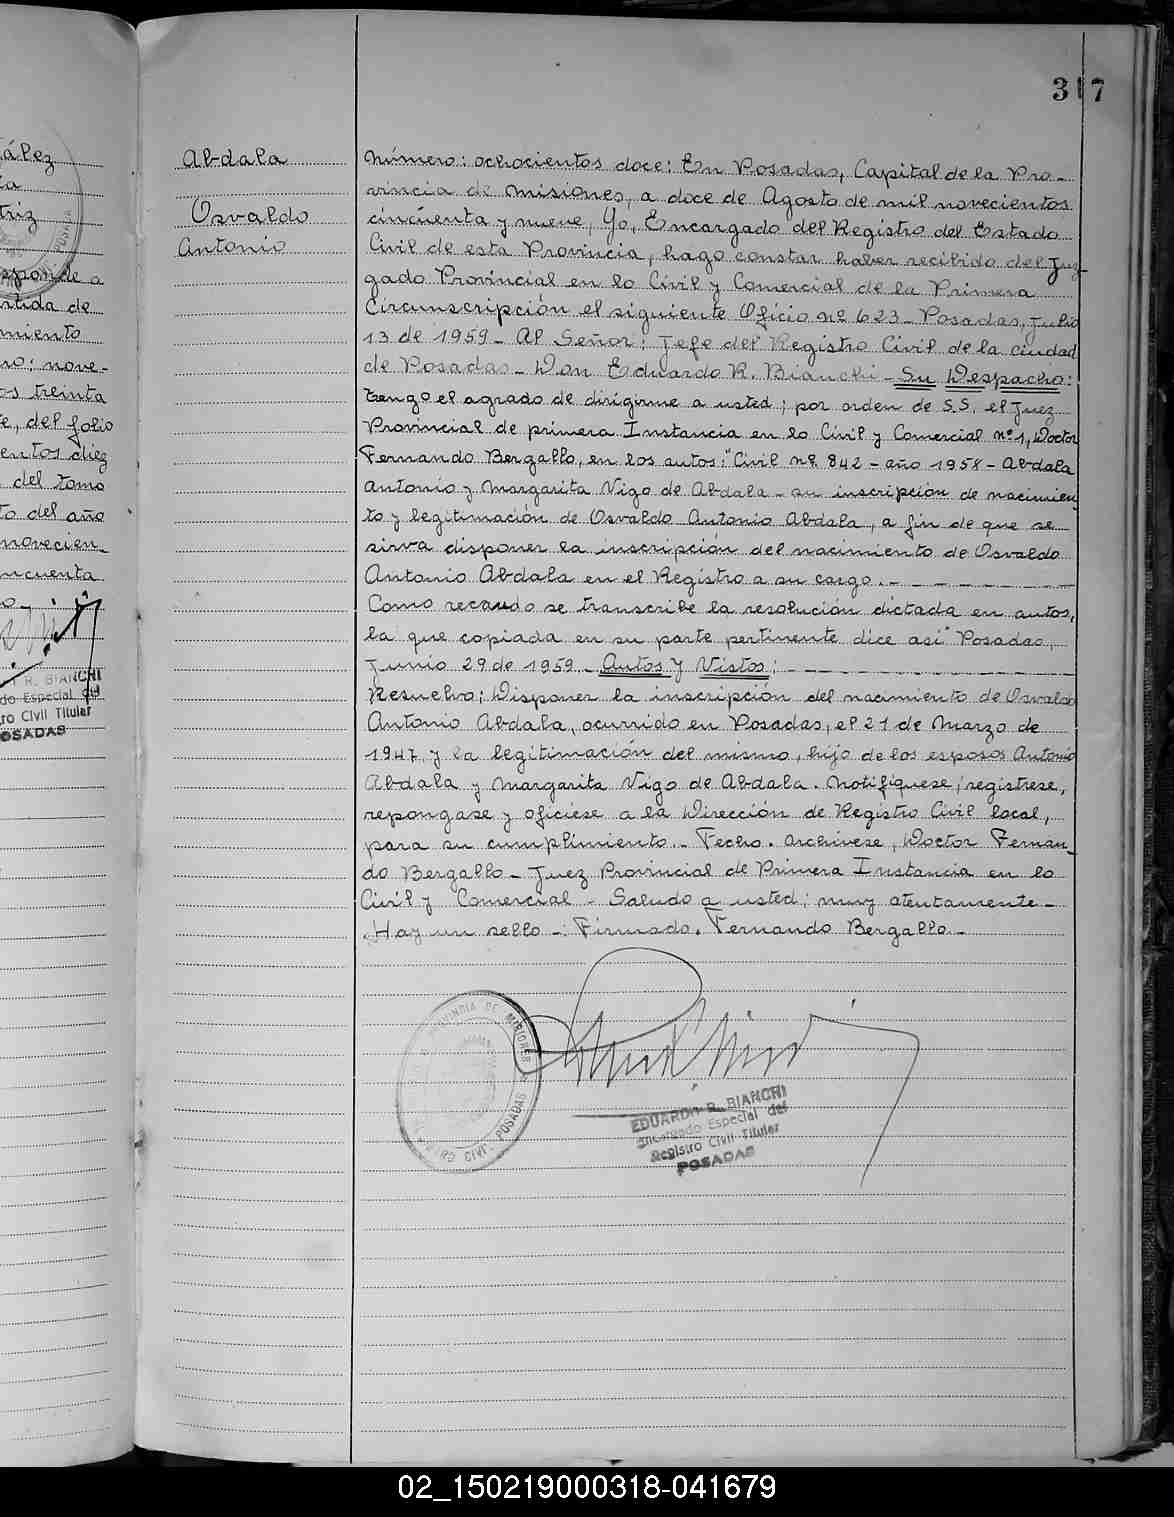 317
ález
ia
triz
esponde a
rtida de
miento
ro: nove-
os treinta
e, del folio
entos diez
del tomo
to del año
novecien-
ncuenta
R. BIANCHI
do Especial del
ro Civil Titular
POSADAS
Abdala
Osvaldo
Antonio
Número: ochocientos doce: En Posadas, Capital de la Pro-
vincia de Misiones, a doce de Agosto de mil novecientos
cincuenta y nueve, Yo, Encargado del Registro del Estado
Civil de esta Provincia, hago constar haber recibido del Juz-
gado Provincial en lo Civil y Comercial de la Primera
Circunscripción el siguiente Oficio nº 623_ Posadas, Julio
13 de 1959_ Al Señor: Jefe del Registro Civil de la ciudad
de Posadas_ Don Eduardo R. Bianchi_ Su Despacho:
Tengo el agrado de dirigirme a usted; por orden de S.S. el Juez
Provincial de primera Instancia en lo Civil y Comercial nº 1, Doctor
Fernando Bergallo, en los autos: "Civil nº 842 - año 1958 - Abdala
Antonio y Margarita Vigo de Abdala - su inscripción de nacimien-
to y legitimación de Osvaldo Antonio Abdala, a fin de que se
sirva disponer la inscripción del nacimiento de Osvaldo
Antonio Abdala en el Registro a su cargo.
Como recaudo se transcribe la resolución dictada en autos,
la que copiada en su parte pertinente dice así" Posadas,
Junio 29 de 1959_ Autos y Vistos:
Resuelvo: Disponer la inscripción del nacimiento de Osvaldo
Antonio Abdala, ocurrido en Posadas, el 21 de Marzo de
1947, y la legitimación del mismo, hijo de los esposos Antonio
Abdala y Margarita Vigo de Abdala. Notifíquese, regístrese,
repóngase y ofíciese a la Dirección de Registro Civil local,
para su cumplimiento.- Fecho. Archívese, Doctor Fernan-
do Bergallo_ Juez Provincial de Primera Instancia en lo
Civil y Comercial - Saludo a usted; muy atentamente_
Hay un sello -: Firmado. Fernando Bergallo_
PROVINCIA DE MISIONES
REGISTRO CIVIL POSADAS
EDUARDO R. BIANCHI
Encargado Especial del
Registro Civil Titular
POSADAS
02_150219000318-041679